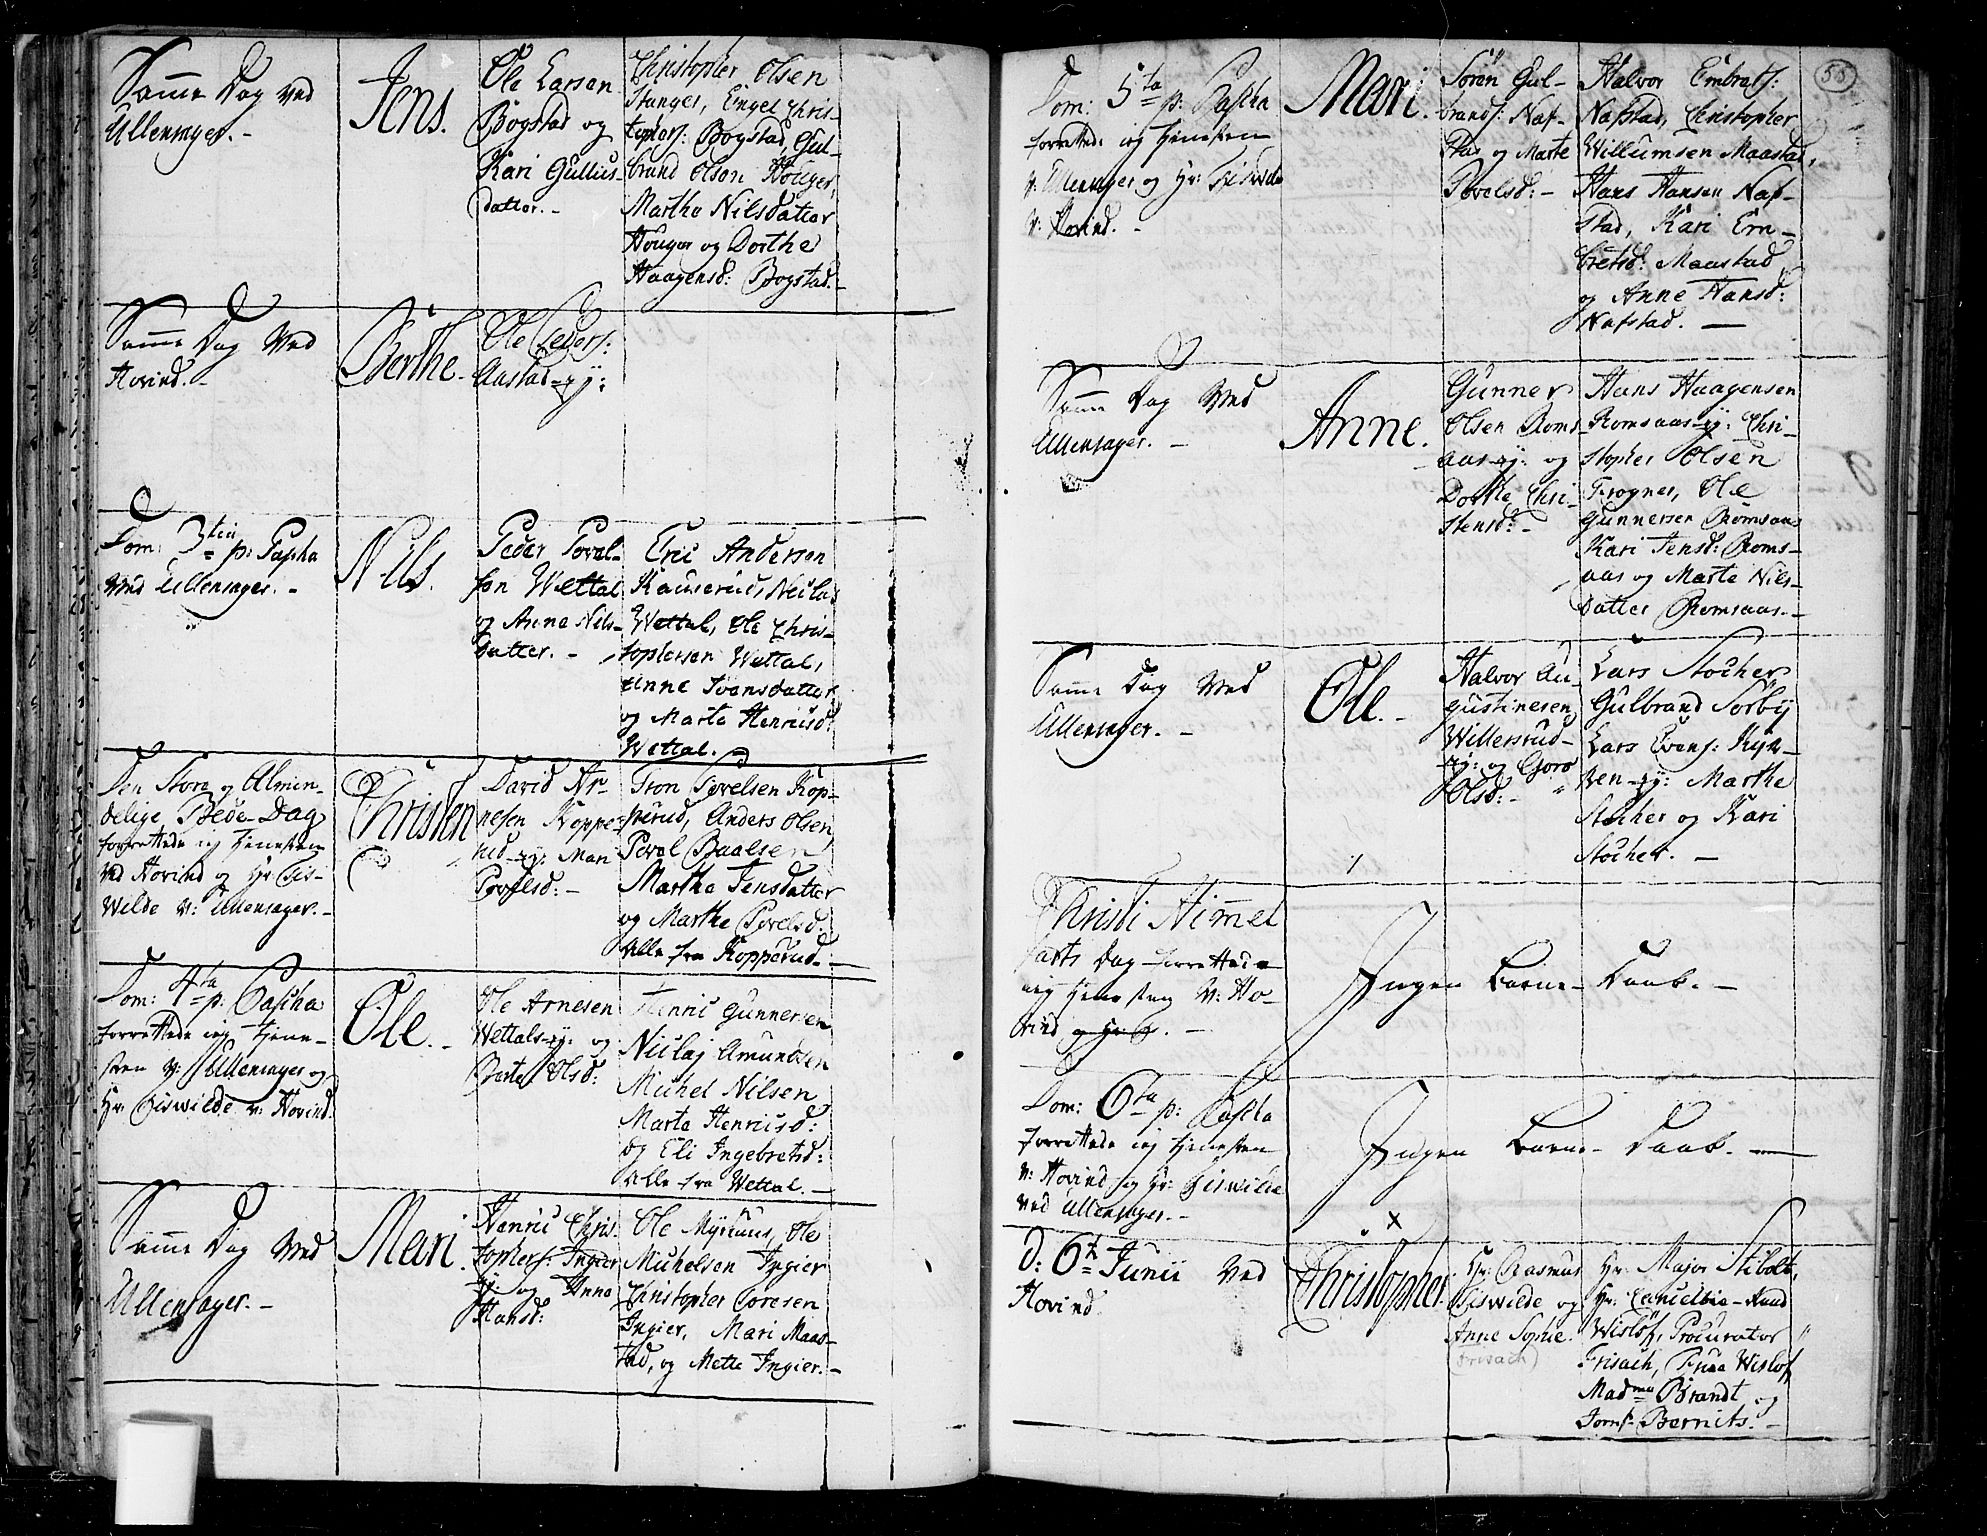 Samme Dag ved
Ullensager.-
Jens.
Ole Larsen
Bogstad og
Kari Gullus-
datter.-
Christopher Olsen
Stanger, Engel Chris-
tophers: Bogstad, Gul-
brand Olson Houger,
Marthe Nilsdatter
Houger og Dorthe
Haagensd: Bogstad.-
Samme Dag Ved
Hovind.-
Berthe.
Ole Peders:
Aastad-ej:
Dom: 3tia p: Pascha
Ved Ullensager.-
Nils.
Peder Povel-
sen Wettal
og Anne Nils-
datter.-
Eric Andersen
Kauserud, Niclas
Wettal, Ole Chris-
tophersen Wettal,
Anne Ivensdatter
og Marta Henricsd:
Wettal.
Den Store og Almin-
delige Bede-Dag
forrettede ieg tjenesten
Ved Hovind og Hr: Bis-
wilde v: Ullensager.-
Christen
David Ar-
nesen Koppe-
rud-ej: Mari
Povelsd:-
Tron Povelsen Kop-
perud, Anders Olsen,
Povel Paalsen
Marthe Jensdatter
og Marthe Povelsd:
alle fra Kopperud.-
Dom: 4ta p: Pascha
forrettede ieg tjene-
sten v: Ullensager og
Hr: Biswilde v: Hovind.
Ole.
Ole Arnesen
Wettals-ej: og
Berte Olsd:
Henric Gunnersen
Niclaj Amundsen
Michel Nilsen
Marte Henricsd:
og Eli Ingebretsd:
alle fra Wettal.-
Samme Dag Ved
Ullensager.-
Mari.
Henric Chris-
tophers: Ingier
ej: og Anne
Hansd:
Ole Myrhuus, Ole
Michelsen Ingier
Christopher Toresen
Ingier, Mari Maa-
stad, og Mette Ingier.-
58
Dom: 5ta p: Pascha
forrettede ieg tjenesten
v: Ullensager og Hr: Biswilde
v: Hovind.-
Mari.
Søren Gul-
brands: Naf-
stad og Marte
Povelsd:-
Halvor Embrets:
Nafstad, Christopher
Willumsen Maastad,
Hans Hansen Naf-
stad, Kari Em-
bretsd: Maastad
og Anne Hansd:
Nafstad.-
Samme Dag Ved
Ullensager.-
Anne.
Gunner
Olsen Roms-
aas-ej: og
Dorthe Chri-
stensd:-
Hans Haagensen
Romsaas-ej: Chri-
stopher Olsen
Frogner, Ole
Gunnersen Romsaas
Kari Jensd: Roms-
aas og Marte Nils-
datter Romsaas.-
Samme Dag Ved
Ullensager.-
Ole.-
Halvor Au-
gustinesen
Willersrud-
ej: og Goro
Olsd:-
Lars Stocher
Gulbrand Sørby
Lars Evens:
Marthe
Stocher og Kari
Stocher.-
Christi Himmel
farts Dag forrettede
ieg tjenesten v: Ho-
vind og Hr: B.-
Ingen Barne-Daab.-
Dom: 6ta p: Pascha
forrettede ieg tjenesten
v: Hovind og Hr: Biswilde
ved Ullensager.-
Ingen Barne-Daab.-
D: 6te Junii Ved
Hovind.
Christopher.
Hr: Rasmus
Biswilde og
Anne Sophie
(Frisach)
Hr: Major Stibolt,
Hr: Cancellie-Raad
Wisløf, Procurator
Frisach, Frue Wisløf,
Madme Brandt og
Jomf: Bernits.-